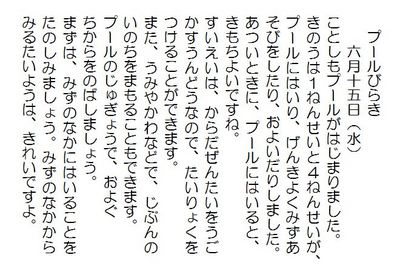 プールびらき
六月十五日（水）
ことしもプールがはじまりました。
きのうは１ねんせいと４ねんせいが、
プールにはいり、げんきよくみずあ
そびをしたり、およいだりしました。
あついときに、プールにはいると、
きもちよいですね。
すいえいは、からだぜんたいをうご
かすうんどうなので、たいりょくを
つけることができます。
また、うみやかわなどで、じぶんの
いのちをまもることもできます。
プールのじゅぎょうで、およぐ
ちからをのばしましょう。
まずは、みずのなかにはいることを
たのしみましょう。みずのなかから
みるたいようは、きれいですよ。